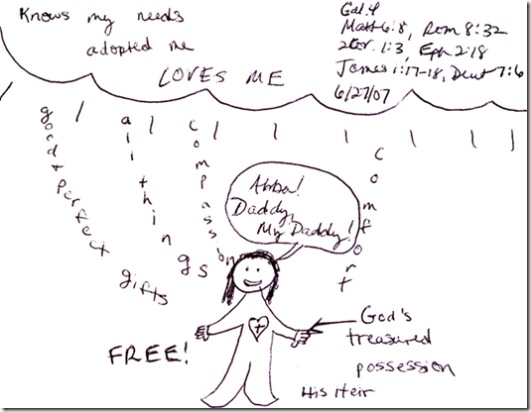 Knows my needs
adopted me
LOVES ME
Gal. 4
Matt 6:8, Rom 8:32
2 Cor. 1:3, Eph 2:18
James 1:17-18, Deut 7:6
6/27/07
good & perfect gifts
all things
compassion
comfort
Abba!
Daddy,
My Daddy!
FREE!
God's
treasured
possession
His Heir